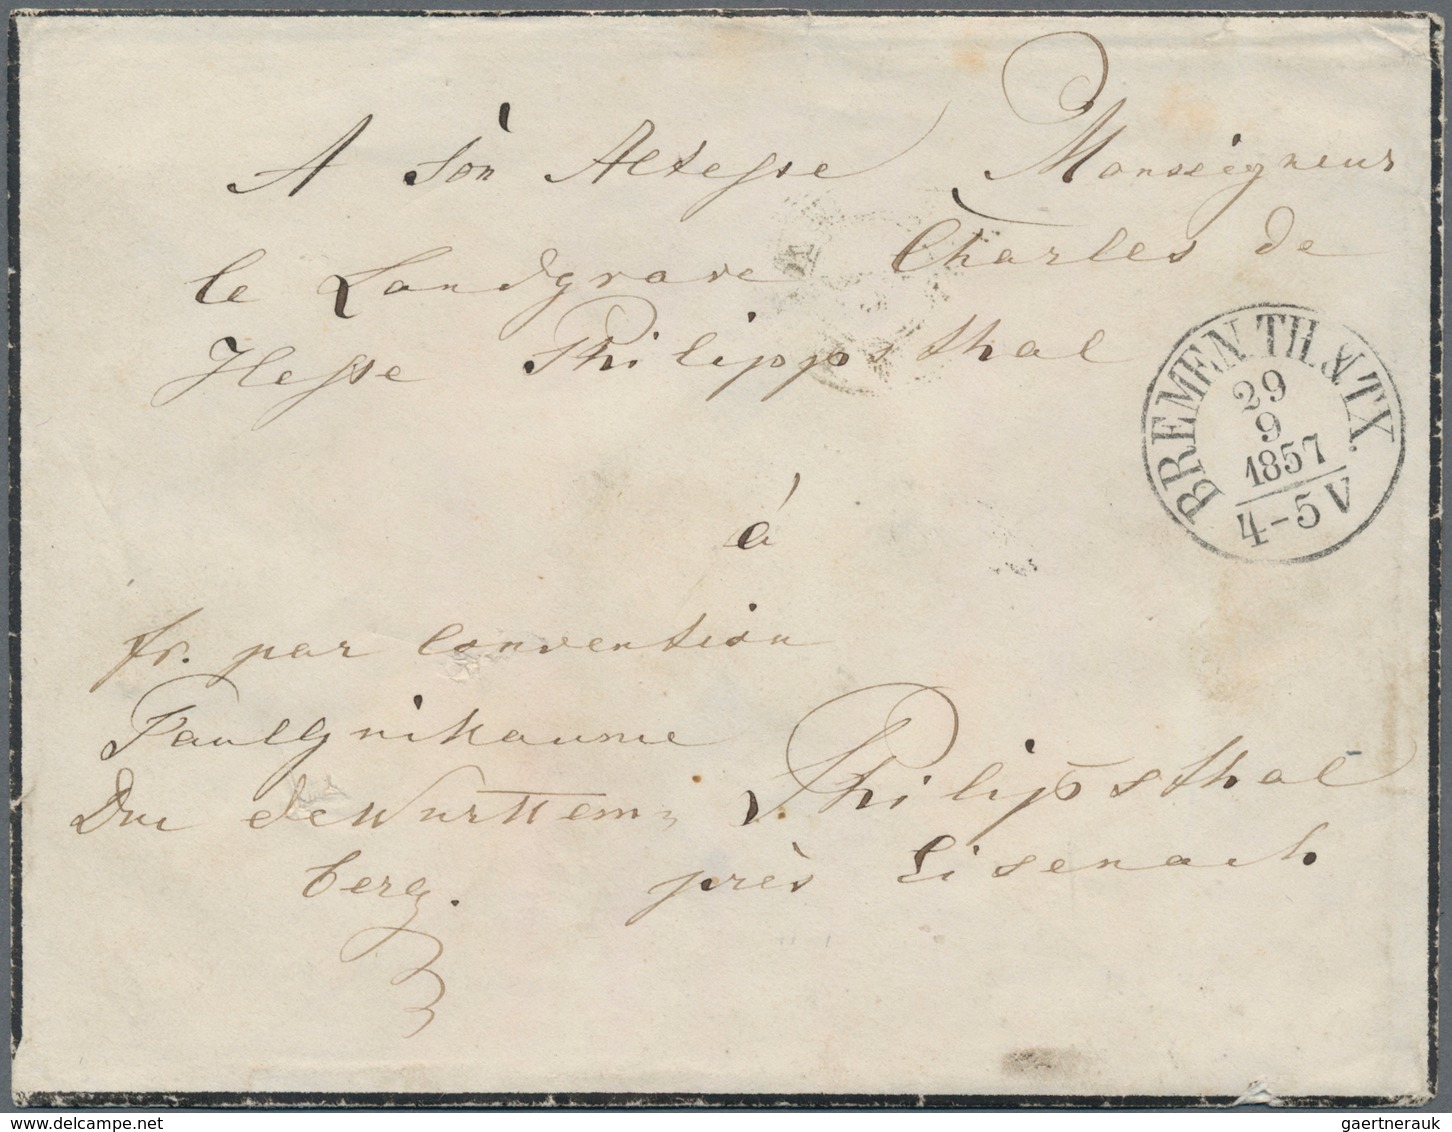 A Son Altesse Monseigneur
le Landgrave Charles de
Hesse Philippsthal
BREMEN TH. & TX.
29
9
1857
4-5 V
à
fr. par convention
Duc de Württem=
berg.
Philippsthal
près Eisenach
delcampe.net
gaertnerauk